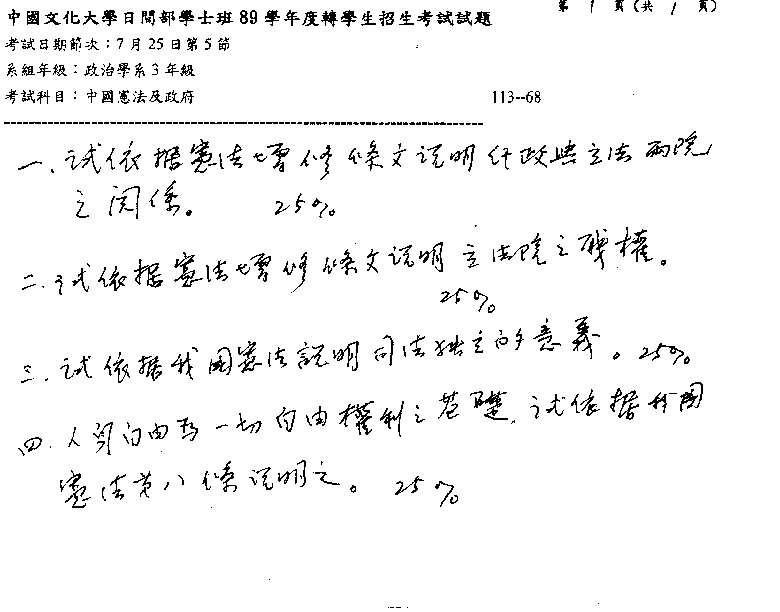 中國文化大學日間部學士班89學年度轉學生招生考試試題 第1頁(共1頁)
考試日期節次：7月25日第5節
系組年級：政治學系3年級
考試科目：中國憲法及政府 113--68
一、試依据憲法增修條文説明行政與立法兩院
之関係。 25%
二、試依据憲法增修條文説明立法院之職權。
25%
三、試依据我國憲法説明司法独立的意義。25%
四、人身自由為一切自由權利之基礎，試依据我國
憲法第八條説明之。25%